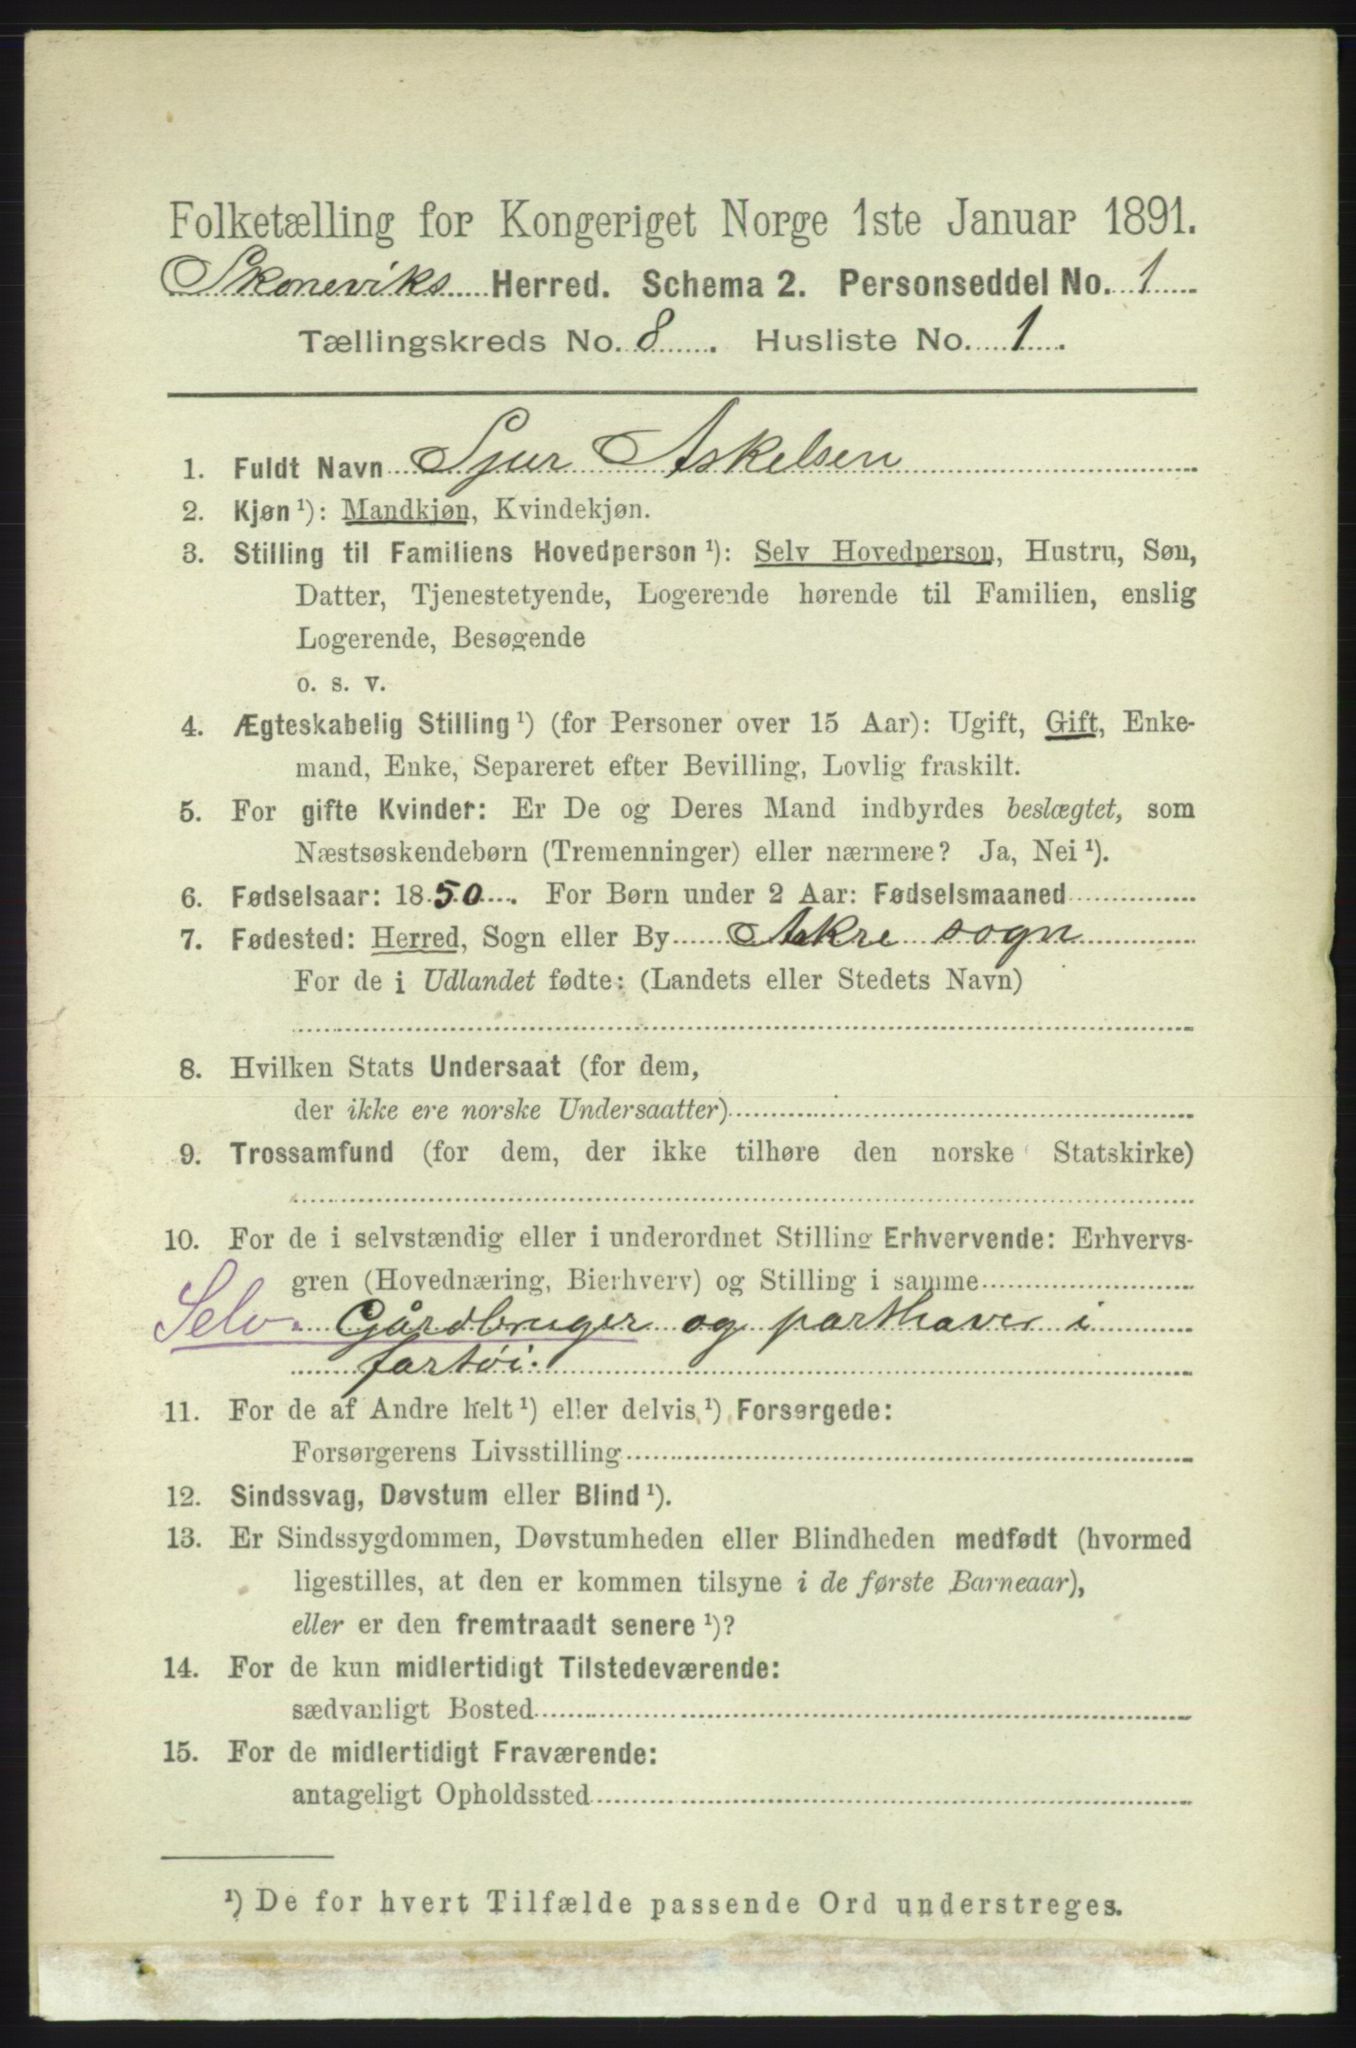 Folketælling for Kongeriget Norge 1ste Januar 1891.
Skoneviks Herred. Schema 2. Personseddel No. 1
Tællingskreds No. 8. Husliste No. 1.
1. Fuldt Navn Sjur Askelsen
2. Kjøn ¹): Mandkjøn, Kvindekjøn.
3. Stilling til Familiens Hovedperson ¹): Selv Hovedperson, Hustru, Søn,
Datter, Tjenestetyende, Logerende hørende til Familien, enslig
Logerende, Besøgende
o. s. v.
4. Ægteskabelig Stilling ¹) (for Personer over 15 Aar): Ugift, Gift, Enke-
mand, Enke, Separeret efter Bevilling, Lovlig fraskilt.
5. For gifte Kvinder: Er De og Deres Mand indbyrdes beslægtet, som
Næstsøskendebørn (Tremenninger) eller nærmere? Ja, Nei ¹).
6. Fødselsaar: 1850. For Børn under 2 Aar: Fødselsmaaned
7. Fødested: Herred, Sogn eller By Akre sogn
For de i Udlandet fødte: (Landets eller Stedets Navn)
8. Hvilken Stats Undersaat (for dem,
der ikke ere norske Undersaatter)
9. Trossamfund (for dem, der ikke tilhøre den norske Statskirke)
10. For de i selvstændig eller i underordnet Stilling Erhvervende: Erhvervs-
gren (Hovednæring, Bierhverv) og Stilling i samme
Selv. Gårdbruger og parthaver i
fartöi.
11. For de af Andre helt ¹) eller delvis ¹) Forsørgede:
Forsørgerens Livsstilling
12. Sindssvag, Døvstum eller Blind ¹).
13. Er Sindssygdommen, Døvstumheden eller Blindheden medfødt (hvormed
ligestilles, at den er kommen tilsyne i de første Barneaar),
eller er den fremtraadt senere ¹)?
14. For de kun midlertidigt Tilstedeværende:
sædvanligt Bosted
15. For de midlertidigt Fraværende:
antageligt Opholdssted
¹) De for hvert Tilfælde passende Ord understreges.